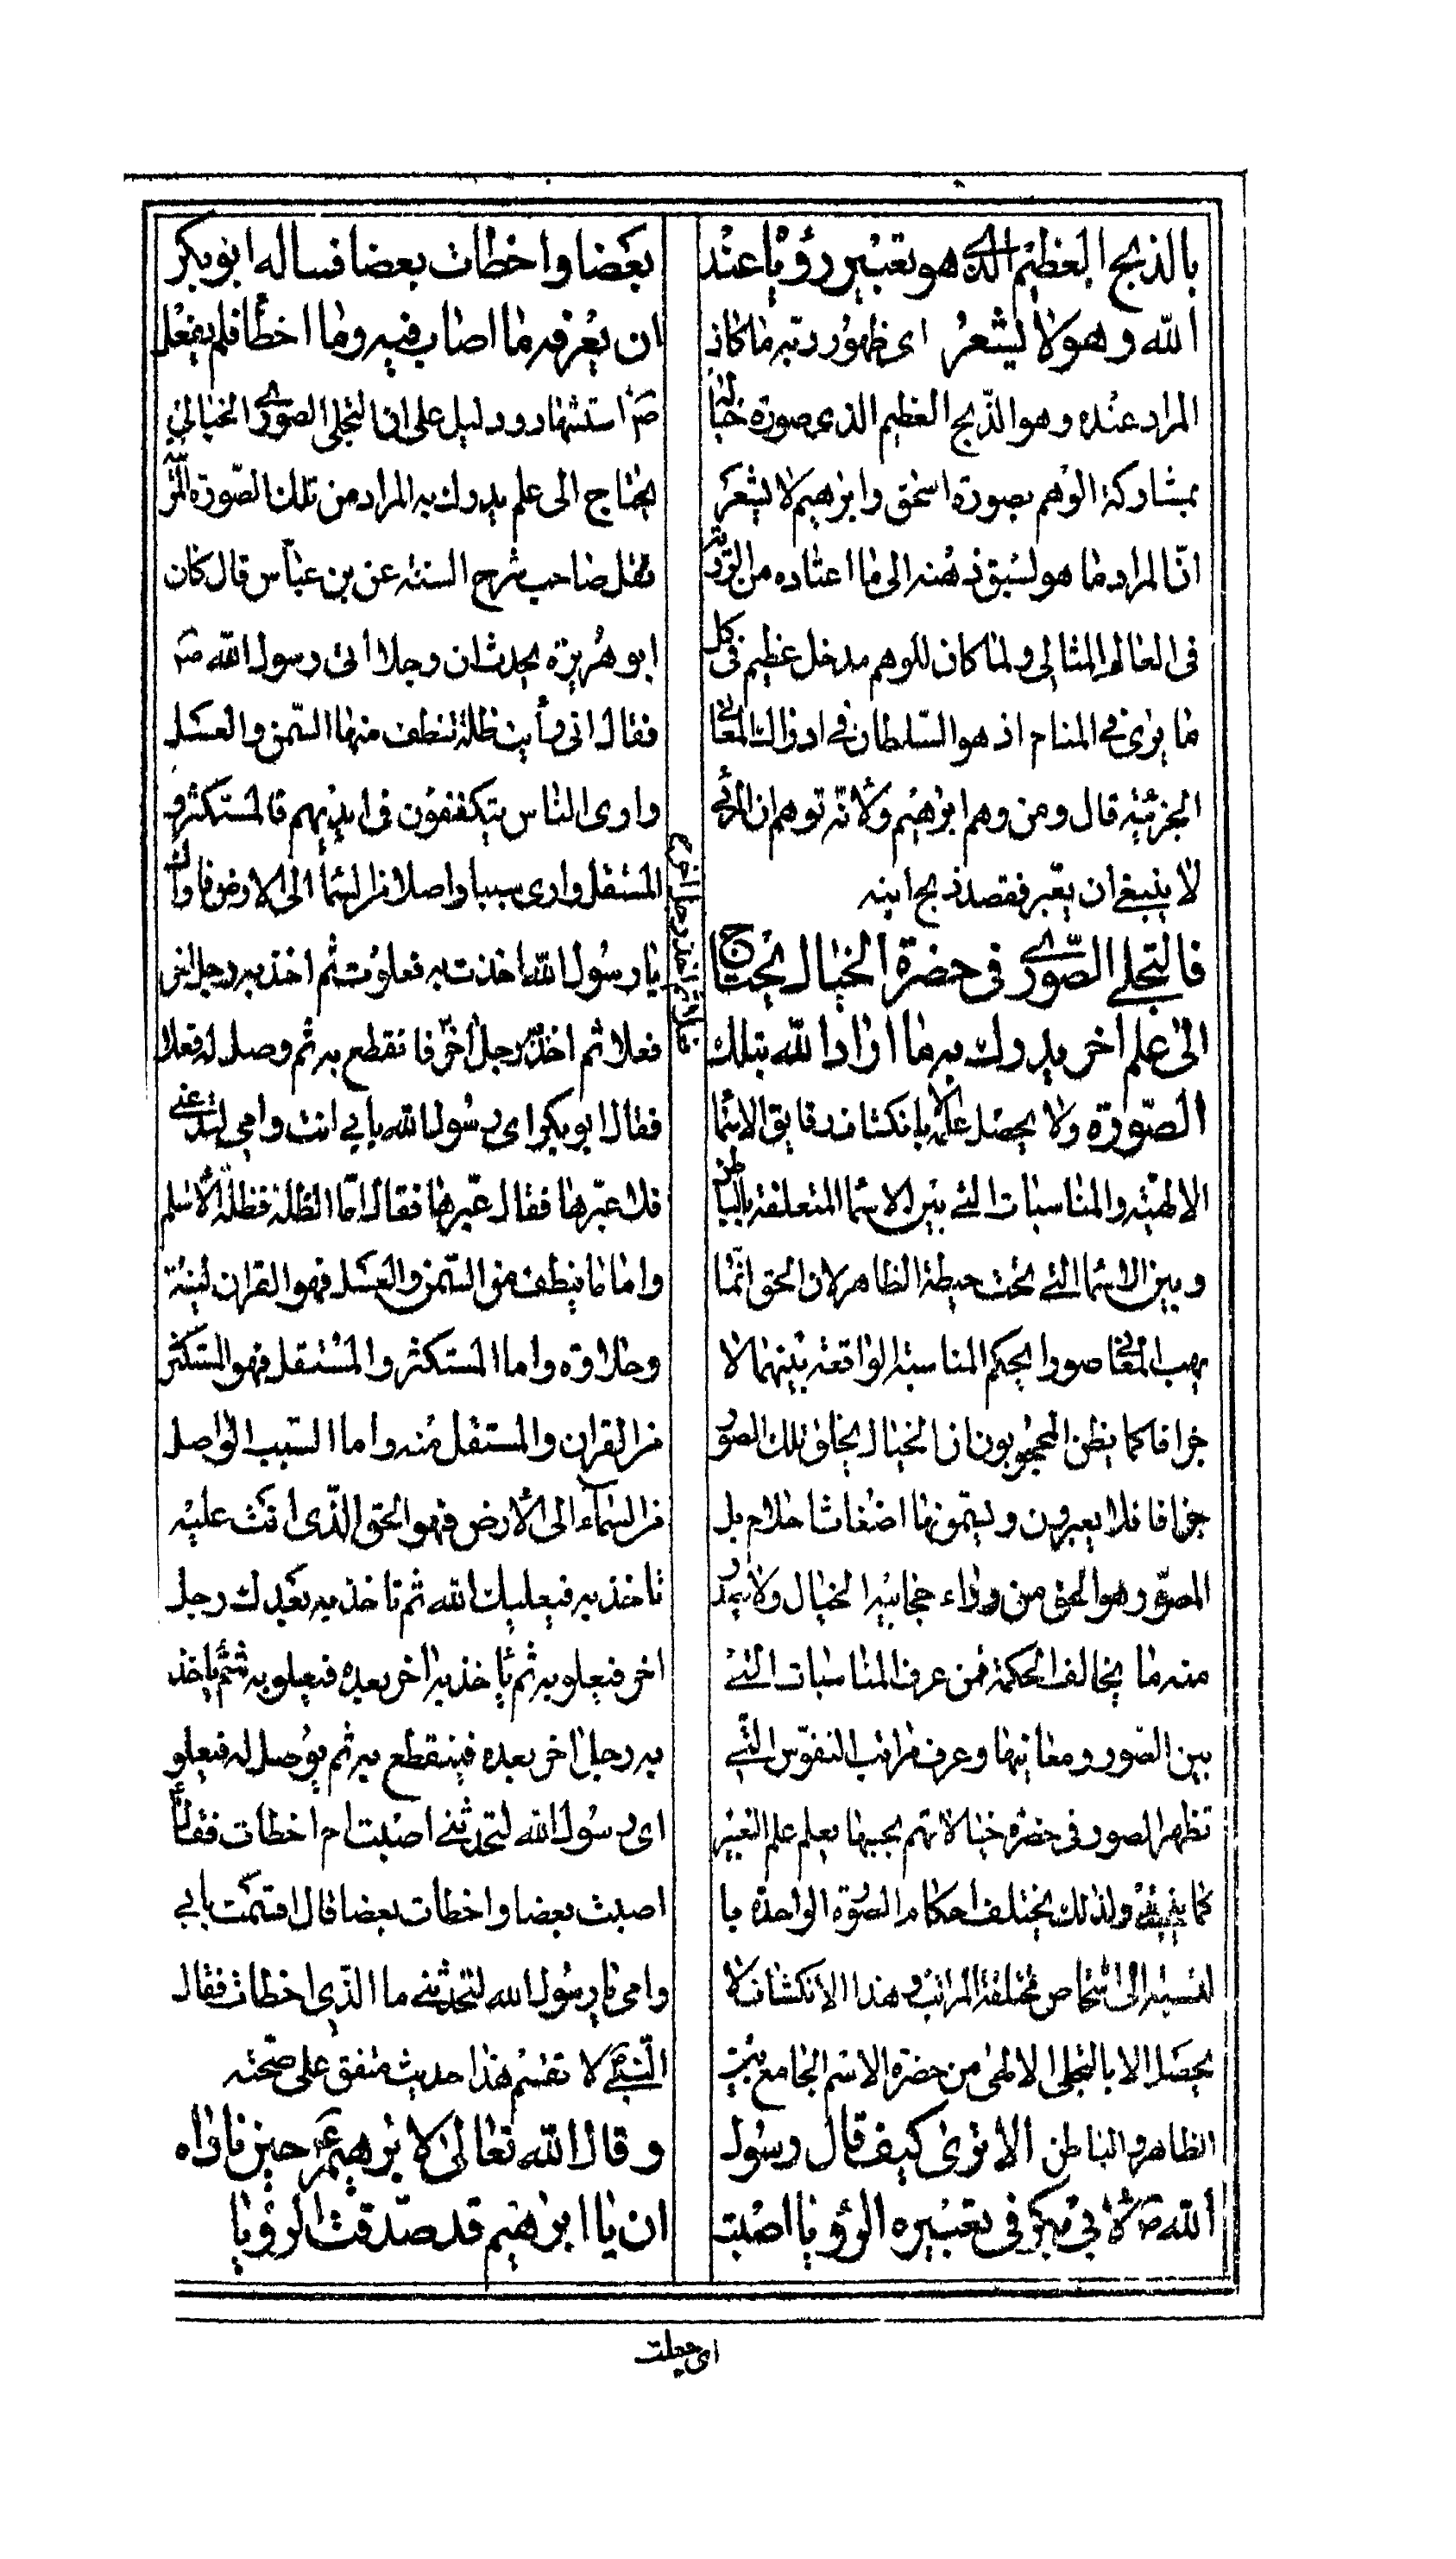 بالذبح العظيم الذي هو تعبير رؤياه عند
الله وهو لا يشعر اى ظهور ربه ما كان
المراد عنده وهو الذّبح العظيم الذى صوره خياله
بمشاركة الوهم بصورة اسحق وابرهيم لا يشعر
انّ المراد ما هو لسبق ذهنه الى ما اعتاده من الرؤية
فى العالم المثالى ولما كان للوهم مدخل عظيم فى كل
ما يرى في المنام اذ هو السّلطان في ادراك المعانى
الجزئية قال ومن وهم ابرهيم ولانّه توهم ان المرئى
لا ينبغى ان يعّبر فقصد ذبح ابنه
فالتجلى الصّورى فى حضرة الخيال يحتاج
الى علم اخر يدرك به ما اراد الله بتلك
الصّورة ولا يحصل علمه الا بانكشاف رقايق الاسما
الالهيّة والمناسبات التى بين الاسما المتعلقة بالباطن
وبين الاسما التى تحت حيطة الظاهر لان الحق انّما
يهب المعانى صورا بحكم المناسبة الواقعة بينهما لا
جزافا كما يظن المحجوبون ان الخيال يخلق تلك الصور
جزافا فلا يعبرون ويسمّونها اضغاث احلام بل
المصوّر هو الحق من وراء حجابية الخيال ولا يصدر
منه ما يخالف الحكمة فمن عرف المناسبات التى
بين الصّور ومعانيها وعرف مراتب النفوس التّى
تظهر الصور فى حضرة خيالاتهم بحسبها يعلم علم التعبير
كما ينبغى ولذلك يختلف احكام الصّورة الواحدة با
لنسبة الى اشخاص مختلفة المراتب وهذا الانكشاف لا
يحصل الا بالتجلى الالهى من حضرة الاسم الجامع بين
الظاهر والباطن الا ترى كيف قال رسول
الله صَ لابي بكر فى تعبيره الرؤيا اصبت
بعضا واخطات بعضا فساله ابو بكر
ان يعرفه ما اصاب فيه وما اخطأ فلم يفعل
صَ استشهاد ودليل على ان التجلى الصورى الخيالي
يحتاج الى علم يدرك به المراد من تلك الصّورة المرئية
نقل صاحب شرح السنة عن بن عبّاس قال كان
ابو هريرة يحدث ان رجلا اتى رسول الله صَ
فقال انى رأيت ظلة تنطف منها السّمن والعسل
وارى الناس يتكففون فى ايديهم فالمستكثر و
المستقل وارى سببا واصلا من السّما الى الارض فاراك
يا رسول الله اخذت به فعلوت ثم اخذ به رجل اخر
فعلا ثم اخذ به رجل اخر فانقطع به ثم وصل له فعلا
فقال ابو بكر اى رسول الله بابي انت وامى لتدعنى
فلاعبّرها فقال عبّرها فقال امّا الظلة فظلّة الاسلم
واما ما ينطف من السّمن والعسل فهو القران لينه
وحلاوته واما المستكثر والمستقل فهو المستكثر
من القران والمستقل منه واما السّبب الواصل
من السّماء الى الارض فهو الحق الّذى انت عليه
تاخذ به فيعليك الله ثم تاخذ به بعدك رجل
اخر فيعلو به ثم ياخذ به اخر بعده فيعلو به ثم ياخذ
به رجل اخر بعده فينقطع به ثم يوصل له فيعلو
اى رسول الله لتحدثنى اصبت ام اخطات فقال
اصبت بعضا واخطات بعضا قال اقسمت بابي
وامى يا رسول الله لتحدثنى ما الذّي اخطات فقال
النّبى لا تقسم هذا حديث متفق على صحّته
وقال الله تعالى لابرهيم حين ناداه
ان يا ابرهيم قد صدّقت الرؤيا
اى جعلت